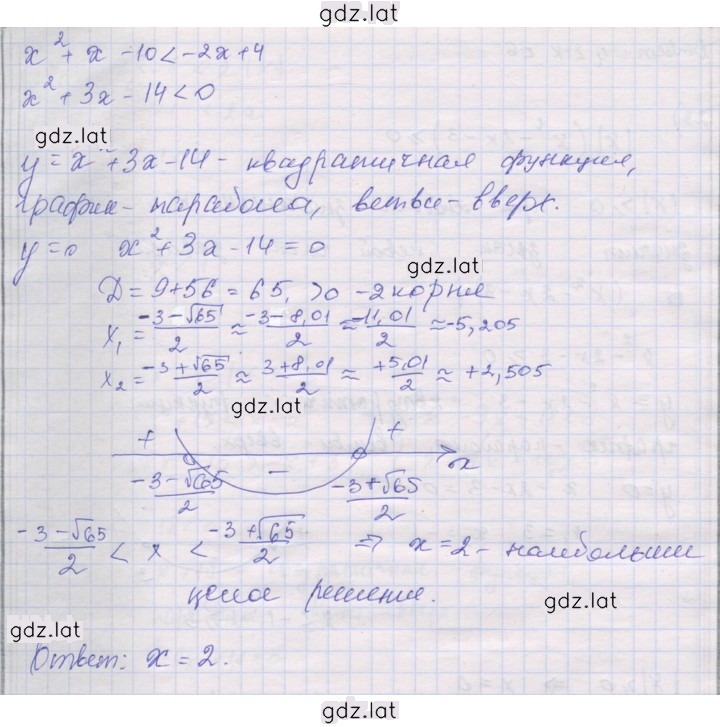 gdz.lat
x² + x - 10 < -2x + 4
x² + 3x - 14 < 0
gdz.lat
y = x² + 3x - 14 - квадратичная функция,
график - парабола, ветви - вверх.
y = 0 x² + 3x - 14 = 0
gdz.lat
D = 9 + 56 = 65, > 0 - 2 корня
x₁ = (-3 - √65)/2 ≈ (-3 - 8,01)/2 ≈ (-11,01)/2 ≈ -5,205
x₂ = (-3 + √65)/2 ≈ (3 + 8,01)/2 ≈ (+5,01)/2 ≈ +2,505
gdz.lat
+ - + x
(-3 - √65)/2 (-3 + √65)/2
(-3 - √65)/2 < x < (-3 + √65)/2 ⇒ x = 2 - наибольшее
целое решение.
gdz.lat
gdz.lat
Ответ: x = 2.
gdz.lat